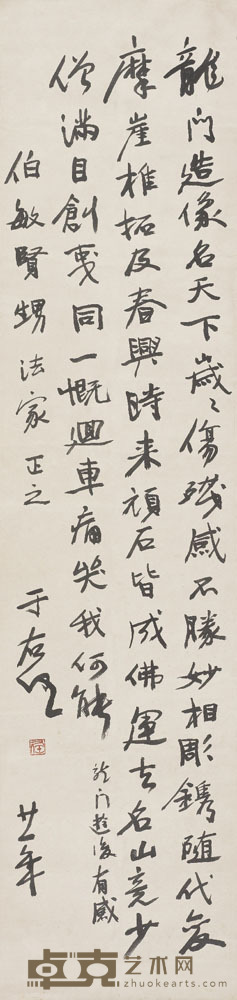 龍門造像名天下歲〻傷殘感不勝妙相彫鐫隨代变
摩崖椎拓及春興時来頑石皆成佛運去名山竟少
僧滿目創夷同一慨迴車痛哭我何能
龙门遊後有感
伯敏賢甥法家正之
于右任
年
卓克艺术网
zhuokearts.com